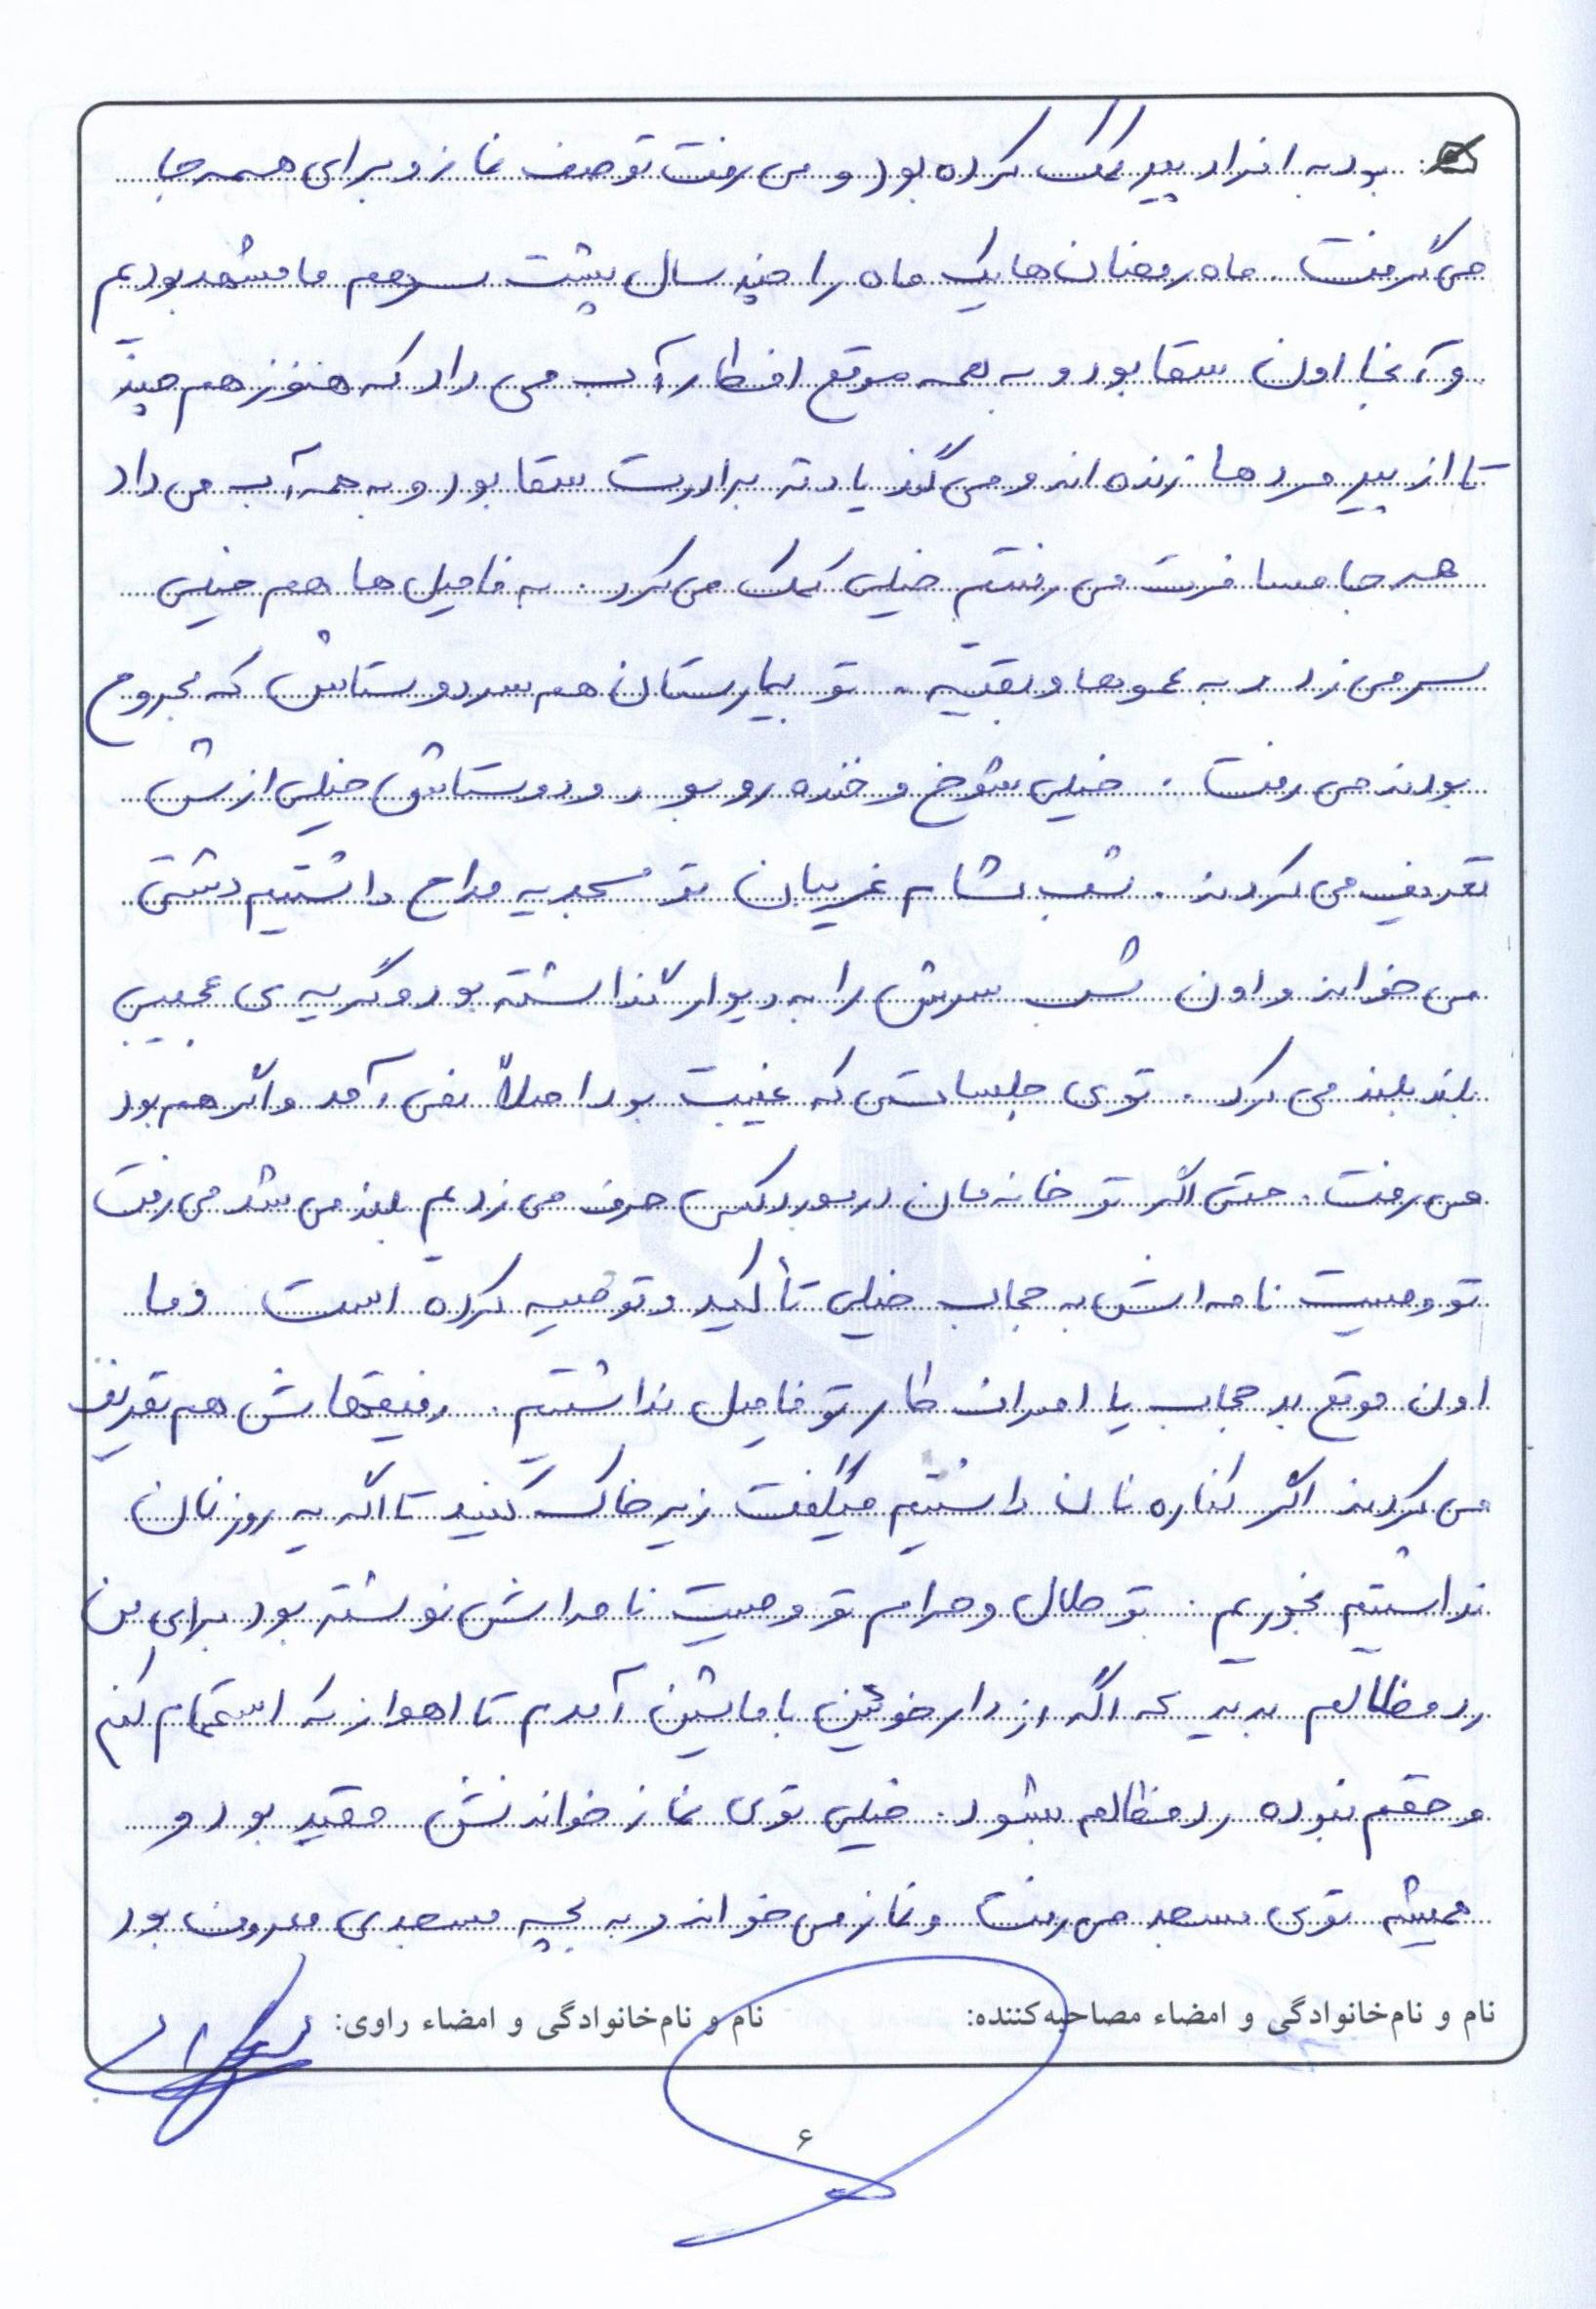 بود به افراد پیر کمک کرده بود و می رفت تو صف نماز و برای همه جا
می گرفت. ماه رمضان ها یک ماه را چند سال پشت سر هم ما مشهد بودیم
و آنجا اون سقا بود و به همه موقع افطار آب می داد که هنوز هم چند
تا از پیرمردها زنده اند و می گند یادته برادرت سقا بود و به همه آب می داد
هر جا مسافرت می رفتیم خیلی کمک می کرد. به فامیل ها هم خیلی
سر می زد به عموها و بقیه. تو بیمارستان هم سر دوستاش که مجروح
بودند می رفت. خیلی شوخ و خنده رو بود و دوستاش خیلی ازش
تعریف می کردند. شب شام غریبان تو مسجد یه مداح داشتیم دشتی
می خواند و اون شب سرش را به دیوار گذاشته بود و گریه ی عجیبی
بلند بلند می کرد. توی جلساتی که غیبت بود اصلاً نمی آمد و اگر هم بود
می رفت. حتی اگر تو خانه مان در مورد کسی حرف می زدیم بلند می شد می رفت
تو وصیت نامه اش به حجاب خیلی تأکید و توصیه کرده است و ما
اون موقع بد حجاب یا اسراف کار تو فامیل نداشتیم. رفیقهاش هم تعریف
می کردند اگر کناره نان داشتیم میگفت زیر خاک کنید تا اگه یه روز نان
نداشتیم بخوریم. تو حلال و حرام تو وصیت نامه اش نوشته بود برای من
رد مظالم بدید که اگه از دارخوئین با ماشین آمدم تا اهواز که استحمام کنم
و حقم نبوده رد مظالم بشود. خیلی توی نماز خواندنش مقید بود و
همیشه توی مسجد می رفت و نماز می خواند و به بچه مسجدی معروف بود
نام و نام‌خانوادگی و امضاء مصاحبه‌کننده: نام و نام‌خانوادگی و امضاء راوی:
۶